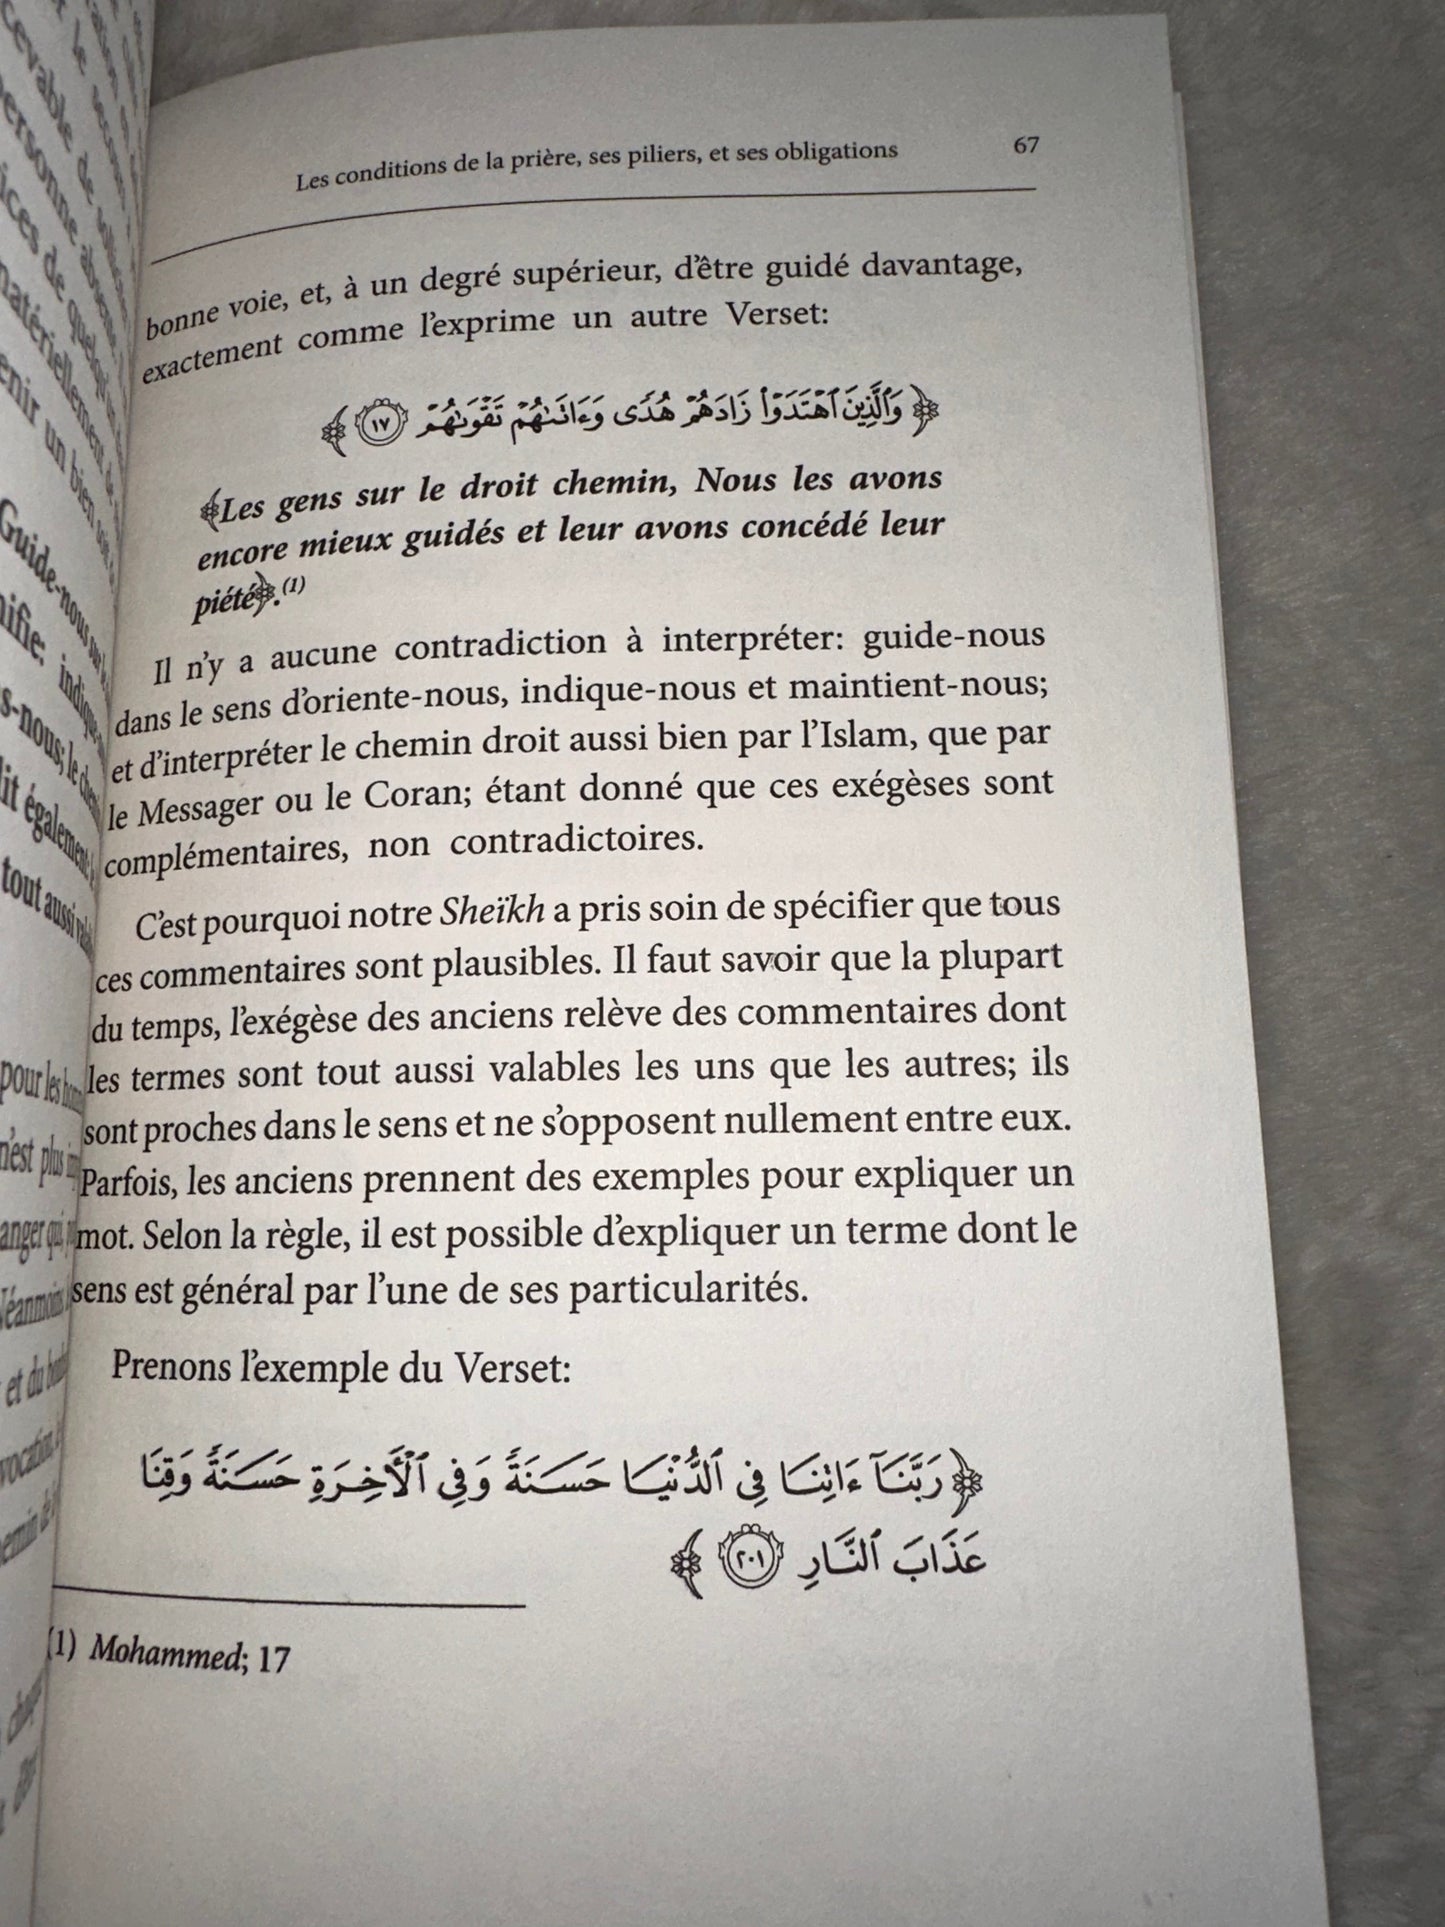 Les conditions de la prière, ses piliers, et ses obligations 67
bonne voie, et, à un degré supérieur, d'être guidé davantage,
exactement comme l'exprime un autre Verset:
﴿وَٱلَّذِينَ ٱهۡتَدَوۡاْ زَادَهُمۡ هُدٗى وَءَاتَىٰهُمۡ تَقۡوَىٰهُمۡ ١٧﴾
﴾Les gens sur le droit chemin, Nous les avons
encore mieux guidés et leur avons concédé leur
piété﴿.(1)
Il n'y a aucune contradiction à interpréter: guide-nous
dans le sens d'oriente-nous, indique-nous et maintient-nous;
et d'interpréter le chemin droit aussi bien par l'Islam, que par
le Messager ou le Coran; étant donné que ces exégèses sont
complémentaires, non contradictoires.
C'est pourquoi notre Sheïkh a pris soin de spécifier que tous
ces commentaires sont plausibles. Il faut savoir que la plupart
du temps, l'exégèse des anciens relève des commentaires dont
les termes sont tout aussi valables les uns que les autres; ils
sont proches dans le sens et ne s'opposent nullement entre eux.
Parfois, les anciens prennent des exemples pour expliquer un
mot. Selon la règle, il est possible d'expliquer un terme dont le
sens est général par l'une de ses particularités.
Prenons l'exemple du Verset:
﴿رَبَّنَآ ءَاتِنَا فِي ٱلدُّنۡيَا حَسَنَةٗ وَفِي ٱلۡأٓخِرَةِ حَسَنَةٗ وَقِنَا
عَذَابَ ٱلنَّارِ ٢٠١﴾
(1) Mohammed; 17